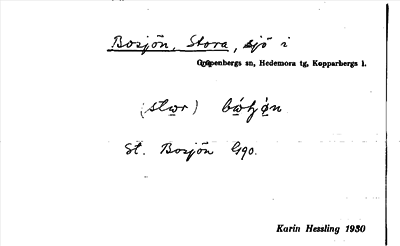 Bosjön, Stora, sjö i
Grangärdenbergs sn, Hedemora tg, Kopparbergs l.
(stωr)
St. Bosjön G90.
Karin Hessling 1930